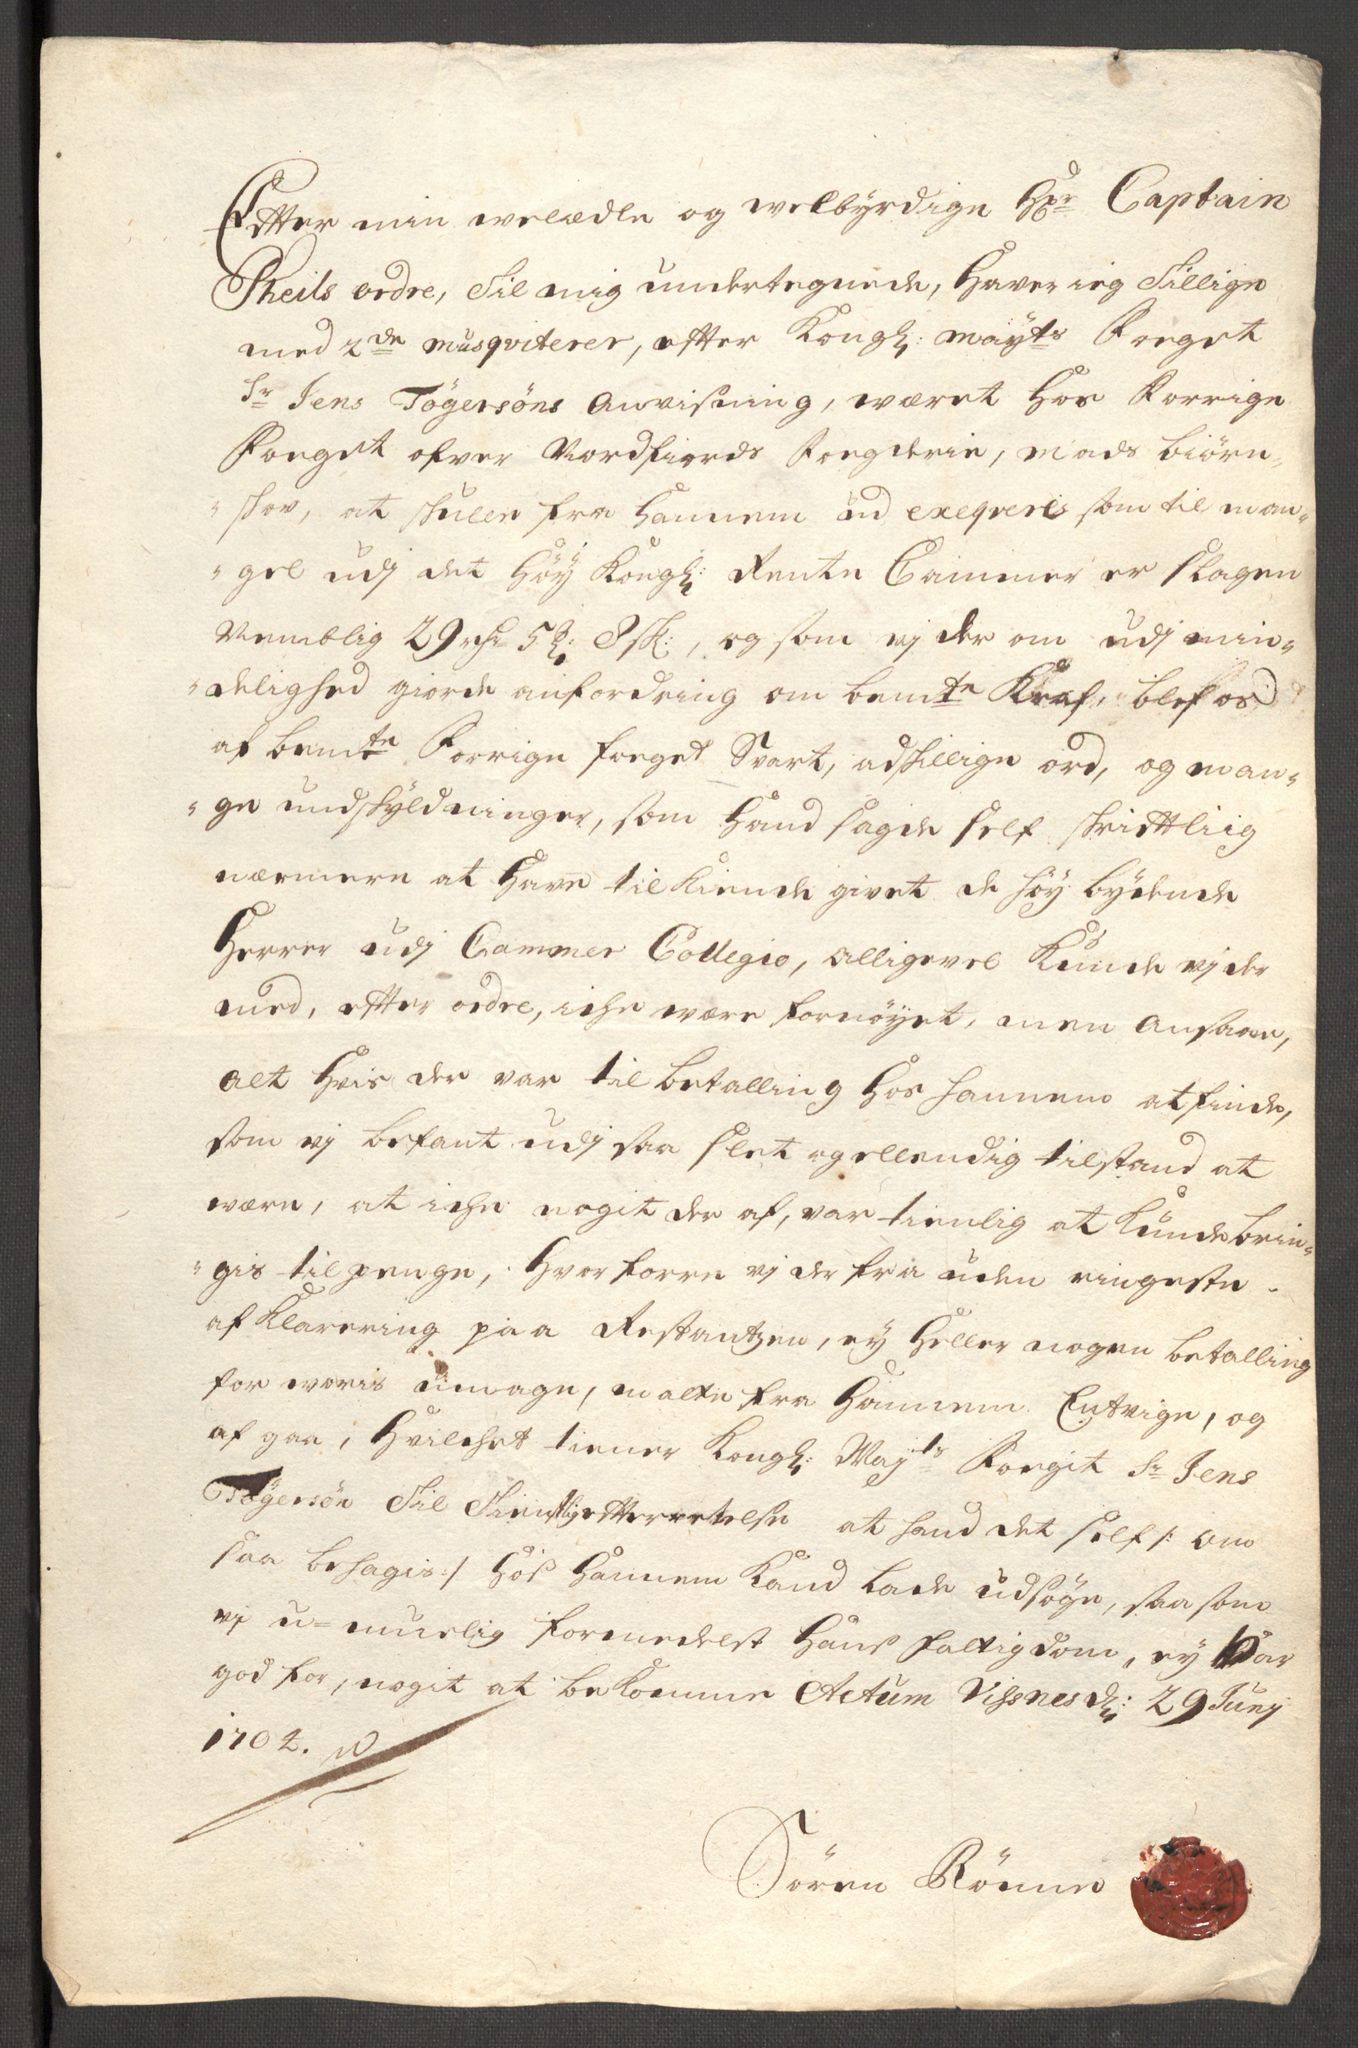 Efter min welædle og welbÿrdige Hr: Captain
Theils ordre, til mig undertegnede, haver ieg tillige
med 2de musqviterer, efter Kongl: maÿts Foeget
Sr Jens Tögersöns anvisning, wæret hos forrige
Foeget ofver Nordfiords Fogderie, Mads biörn-
-skov, at skulle fra hannem ud exeqveris som til man-
-gel udj det höÿ Kongl: Rente Cammer er slagen
Nemblig 29 rdr 5 8 sk:, og som vj der om udj min-
-delighed giorde anfordring om bemte Kraf, blef os
af bemte Forrige foeget Svart, adskillige ord, og man-
-ge undskÿldninger, som hand sagde self skriftliig
nærmere at have tilkiende givet de höÿ bÿdende
Herrer udj Cammer Collegio, alligevel kunde vj der
med, efter ordre, iche være fornöÿet, men ansaae,
alt hvis der var til betalling hos hannem at finde,
som vj befant udj saa slet og ellendig tilstand at
være, at iche nogit der af, var tienlig at kunde brin-
-gis til penge, hvorforre vj der fra uden ringeste
afklarering paa Restantzen, eÿ heller nogen betalling
for woris umage, matte fra hannem Entvige, og
af gaa, hvilchet tiener Kongl: Majts Foegit Sr Jens
Tögersön til tienstlig efterretelse at hand det self /: om
saa behagis :/ hoß hannem kand lade udsöge, saa som
vj u-muelig formedelst hanß fattigdom, eÿ var
god for, nogit at bekomme Actum Vihsnes d: 29 Junj
1702.
Sören Rönne